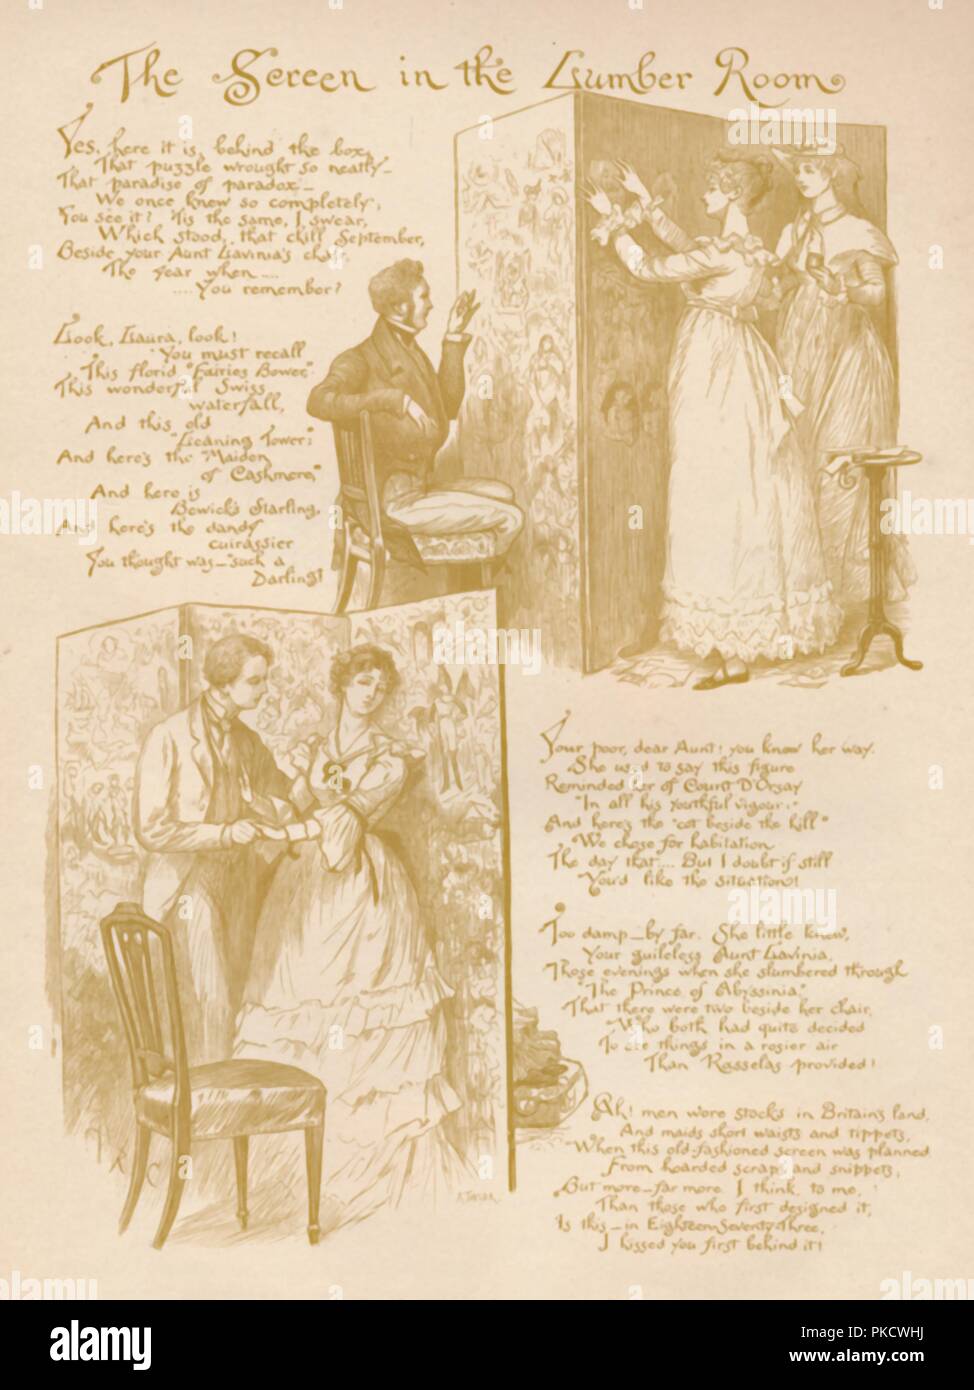 The Screen in the Lumber Room
Yes, here it is, behind the box,
That puzzle wrought so neatly—
That paradise of paradox—
We once knew so completely;
You see it? 'Tis the same, I swear,
Which stood, that chill September,
Beside your Aunt Lavinia's chair
The year when ....
.... You remember?
Look, Laura, look!
You must recall
This florid "Fairies Bower,"
This wonderful Swiss
waterfall,
And this old
"Leaning Tower;"
And here's the "Maiden
of Cashmere,"
And here is
Bewick's Starling,
And here's the dandy
cuirassier
You thought was—"such a
Darling!"
Your poor, dear Aunt! you know her way.
She used to say this figure
Reminded her of Count D'Orsay
"In all his youthful vigour;"
And here's the "cot beside the hill"
We chose for habitation
The day that.... But I doubt if still
You'd like the situation!
Too damp—by far. She little knew,
Your guileless Aunt Lavinia,
Those evenings when she slumbered through
"The Prince of Abyssinia,"
That there were two beside her chair,
Who both had quite decided
To see things in a rosier air
Than Rasselas provided!
Ah! men wore stocks in Britain's land,
And maids short waists and tippets,
When this old-fashioned screen was planned
From hoarded scraps and snippets;
But more—far more I think, to me,
Than those who first designed it,
Is this—in Eighteen Seventy-Three,
I kissed you first behind it!
alamy
a
alamy
Image ID: PKCWHJ
www.alamy.com